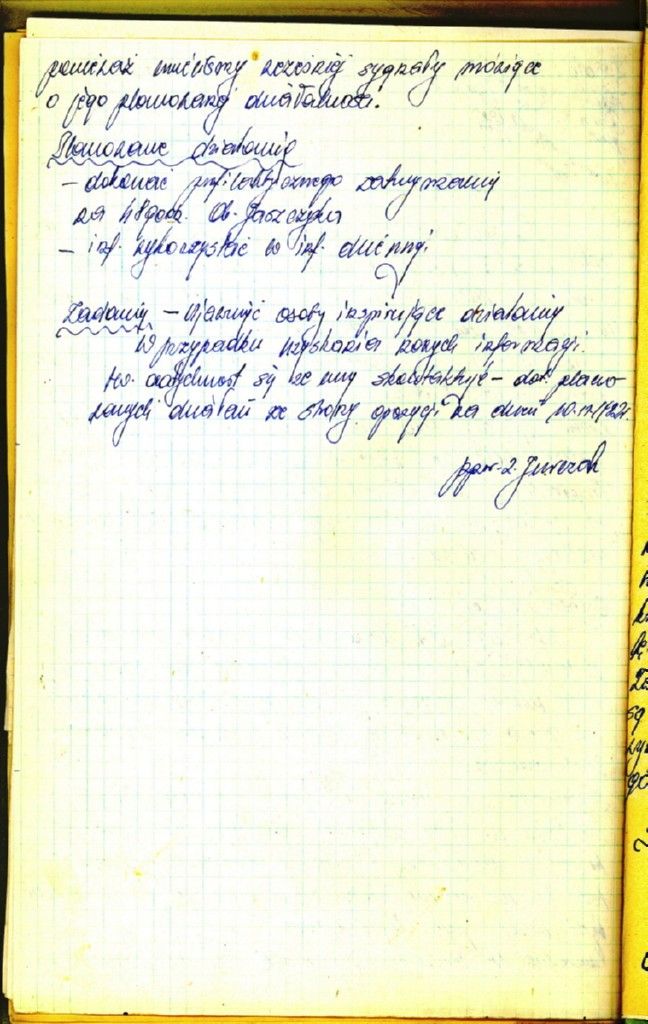 ponieważ mieliśmy wcześniej sygnały mówiące
o jego planowanej działalności.
Planowane działania
– dokonać profilaktycznego zatrzymania
na 48 godz. Ob. Jaszczyka
– inf. wykorzystać w inf. dziennej
Zadania – ujawnić osoby inspirujące działania
W przypadku uzyskania nowych informacji
tw. natychmiast się ze mną skontaktuje – dot. plano-
wanych działań ze strony opozycji na dzień
ppor.